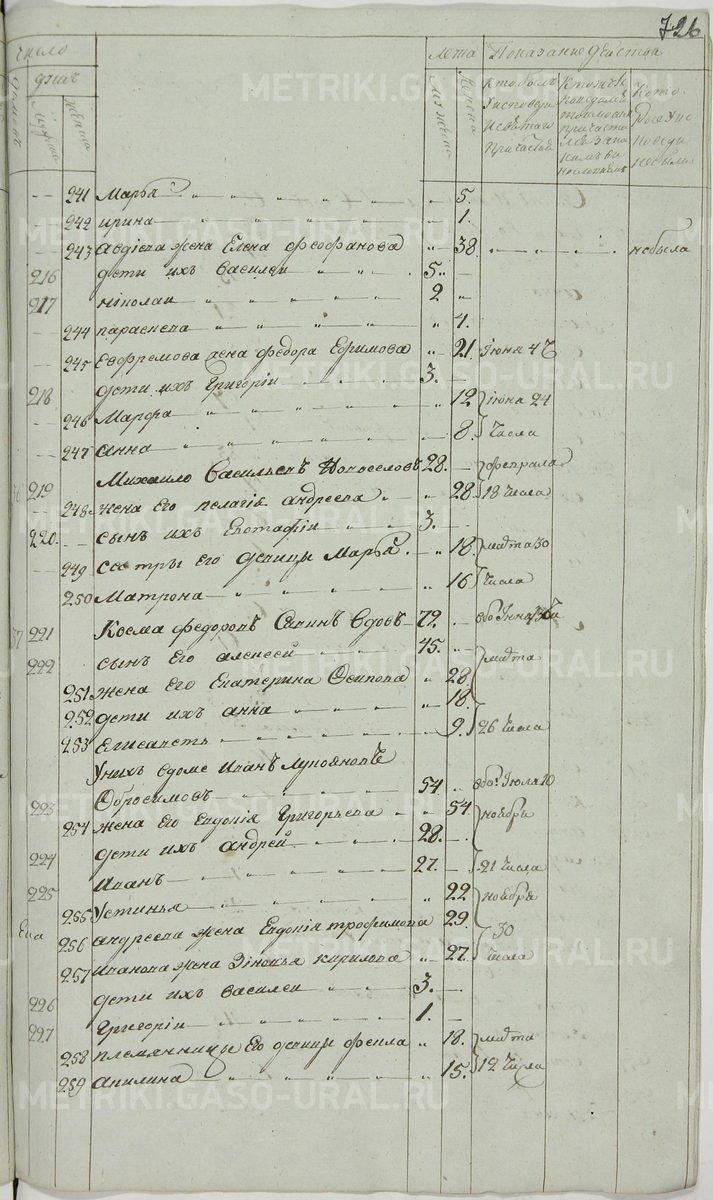 726
Число Лета Показание действа
душъ
Мужска женска мужска женска Кто былъ у исповеди и святаго причастия Кто же исповедался токмо а не причастился и за какимъ винословиемъ Которые у исповеди не были
241 Марья 5.
242 ирина 1.
243 авдѣева жена Елена Феофанова 38. небыла
216 дети ихъ Василеи 5
217 николаи 2
244 парасковея 4.
245 Евфремова жена Федора Ефимова 21. Июня 4
218 дети ихъ Григорiи 3.
246 Марфа 12 июня 24
247 анна 8. Числа
219 Михаило Васильевъ Новоселовъ 28. февраля
248 жена его пелагiя андреева 28. 18 Числа
220. сынъ ихъ Евстафiи 3.
249 сестры его девицы Марья 18. марта 30
250 Матрона 16 Числа
57 221 Косма федоровъ Сапинъ вдовъ 72.
222 сынъ Его алексей 45. марта
251 жена его Екатерина Осипова 28
252 дети ихъ анна 18.
253 Елисаветъ 9. 26 Числа
У нихъ в доме Иванъ
223 Обросимовъ 54 Июля 10
254 жена Его Евдокiя Григорьева 54. ноября
224 дети ихъ андрей 28.
225 Иванъ 27. 21 Числа
255 Устинья 22 ноября
256 андреева жена Евдокiя трофимова 29. 30
257 иванова жена Зиновья кирилова 27. Числа
226 дети ихъ Василеи 3.
227 Григорiи 1.
258 племянницы Его девицы фекла 18. марта
259 акилина 15. 12 Числа
METRIKI.GASO-URAL.RU